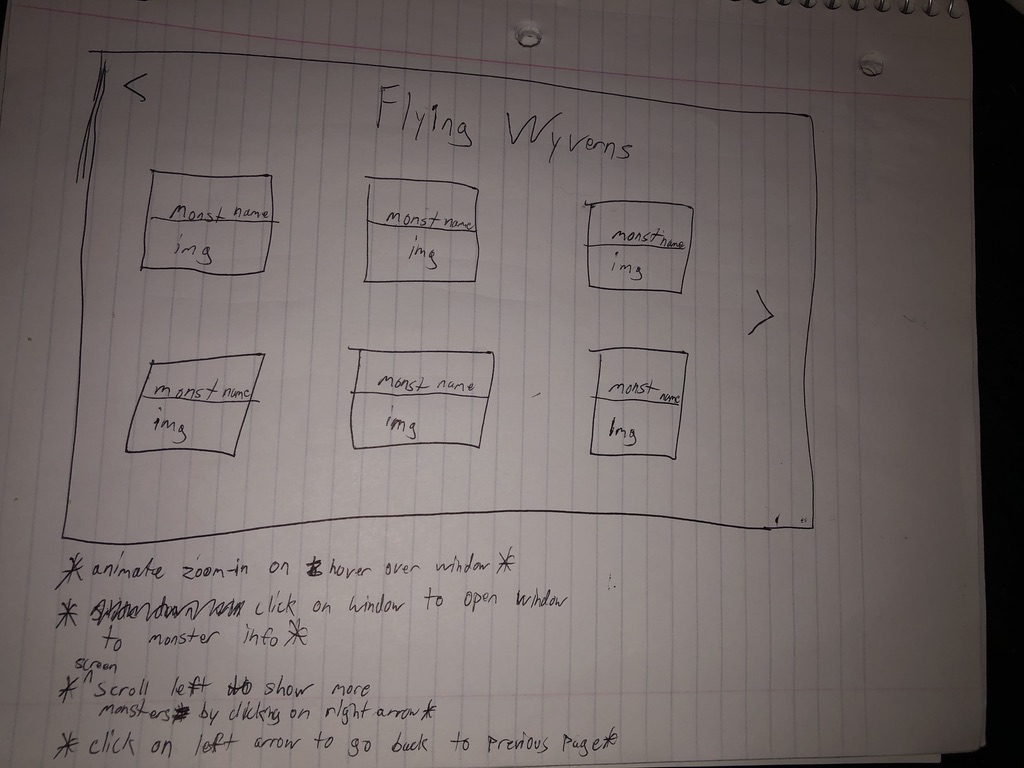 <
Flying Wyverns
monst name
img
monst name
img
monst name
img
>
monst name
img
monst name
img
monst name
img
* animate zoom-in on hover over window *
* click on window to open window
to monster info *
* screen scroll left show more
monsters by clicking on right arrow *
* click on left arrow to go back to previous page *